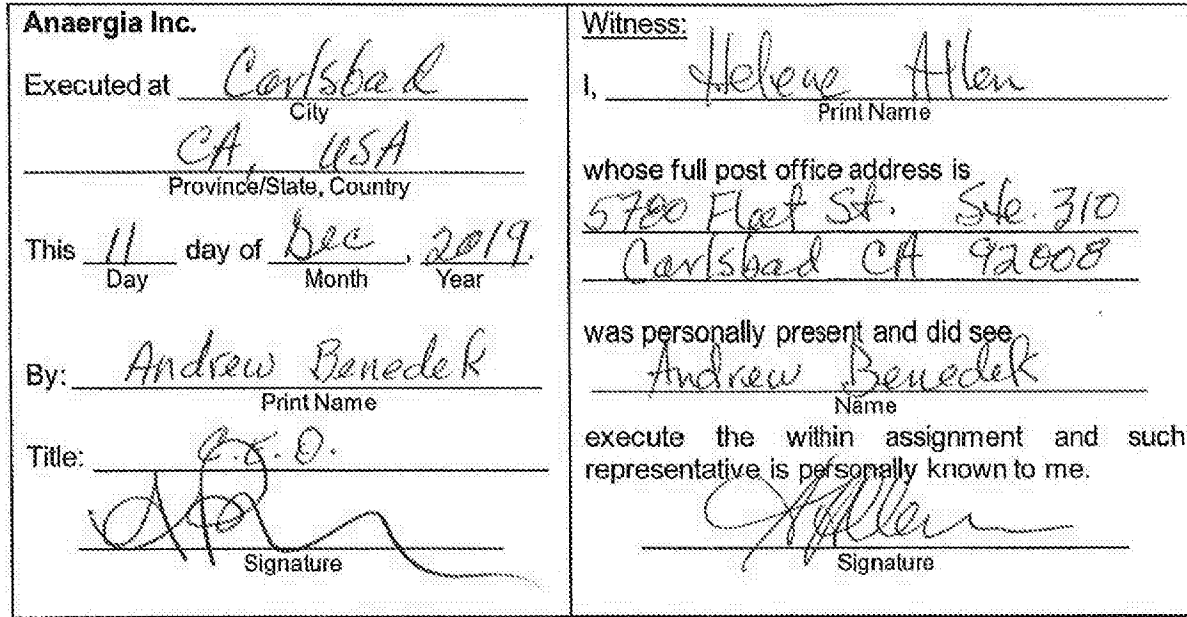 Anaergia Inc.
Executed at Carlsbad
City
CA, USA
Province/State, Country
This 11 day of Dec, 2019.
Day Month Year
By: Andrew Benedek
Print Name
Title: C.E.O.
Signature
Witness:
I, Helene Allen
Print Name
whose full post office address is
5780 Fleet St. Ste. 310
Carlsbad CA 92008
was personally present and did see
Andrew Benedek
Name
execute the within assignment and such
representative is personally known to me.
Signature